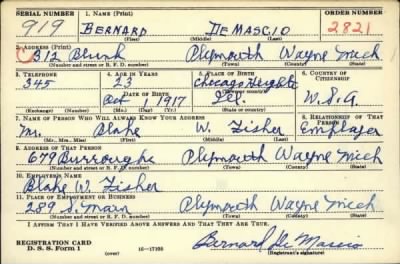 SERIAL NUMBER 1. NAME (Print) ORDER NUMBER
919 BERNARD DEMASCIO 2821
(First) (Middle) (Last)
2. ADDRESS (Print)
312 Blunk Plymouth Wayne Mich
(Number and street or R. F. D. number) (Town) (County) (State)
3. TELEPHONE 4. AGE IN YEARS 5. PLACE OF BIRTH 6. COUNTRY OF CITIZENSHIP
345 23 Chicago Heights
DATE OF BIRTH (Town or county)
Oct 1917 Ill. U.S.A.
(Exchange) (Number) (Mo.) (Day) (Yr.) (State or country)
7. NAME OF PERSON WHO WILL ALWAYS KNOW YOUR ADDRESS 8. RELATIONSHIP OF THAT PERSON
Mr. Blake W. Fisher Employer
(Mr., Mrs., Miss) (First) (Middle) (Last)
9. ADDRESS OF THAT PERSON
679 Burroughs Plymouth Wayne Mich
(Number and street or R. F. D. number) (Town) (County) (State)
10. EMPLOYER'S NAME
Blake W. Fisher
11. PLACE OF EMPLOYMENT OR BUSINESS
289 S. Main Plymouth Wayne Mich
(Number and street or R. F. D. number) (Town) (County) (State)
I AFFIRM THAT I HAVE VERIFIED ABOVE ANSWERS AND THAT THEY ARE TRUE.
REGISTRATION CARD
D. S. S. Form 1 (over) 16—17105 Bernard De Mascio
(Registrant's signature)